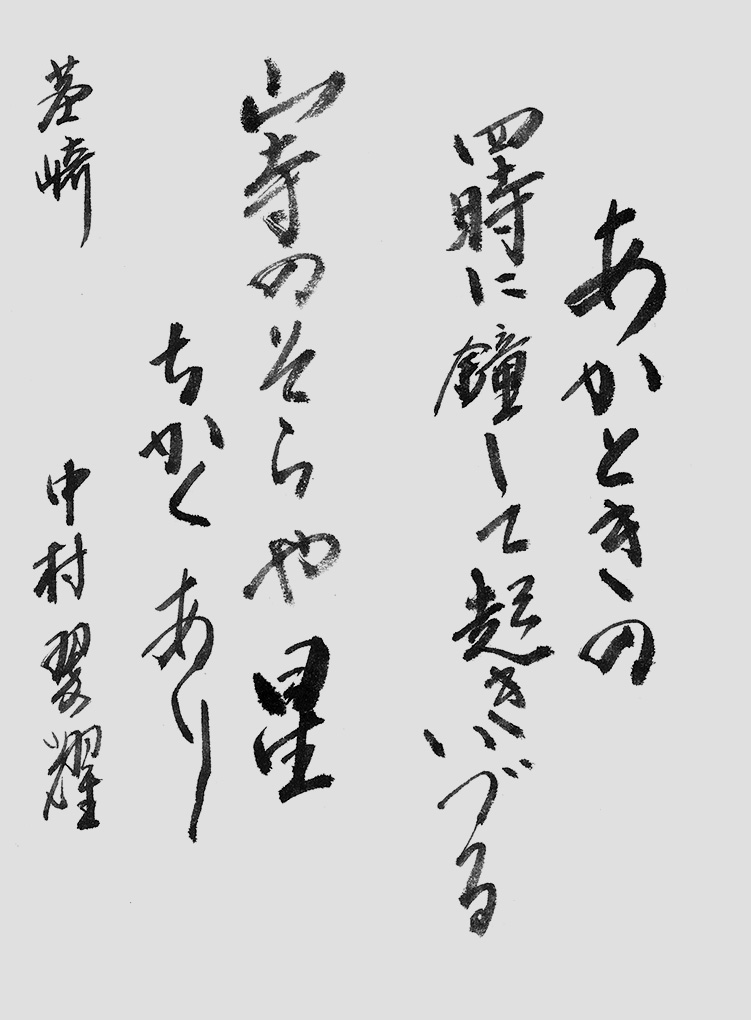 あかときの
四時に鐘して起きいづる
山寺のそらや星
ちかくあり
茎崎 中村翠耀